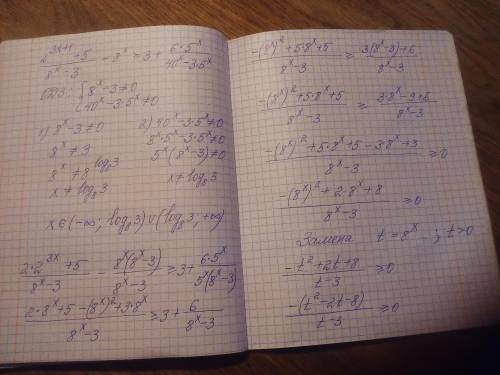 (2^(3x+1) + 5)/(8^x - 3) - 8^x ≥ 3 + (6·5^x)/(40^x - 3·5^x)
ОДЗ: { 8^x - 3 ≠ 0
40^x - 3·5^x ≠ 0
1) 8^x - 3 ≠ 0
8^x ≠ 3
8^x ≠ 8^(log₈3)
x ≠ log₈3
2) 40^x - 3·5^x ≠ 0
8^x·5^x - 3·5^x ≠ 0
5^x(8^x - 3) ≠ 0
x ≠ log₈3
x ∈ (-∞; log₈3) ∪ (log₈3; +∞)
(2·2^(3x) + 5)/(8^x - 3) - (8^x(8^x - 3))/(8^x - 3) ≥ 3 + (6·5^x)/(5^x(8^x - 3))
(2·8^x + 5 - (8^x)² + 3·8^x)/(8^x - 3) ≥ 3 + 6/(8^x - 3)
(-(8^x)² + 5·8^x + 5)/(8^x - 3) ≥ (3(8^x - 3) + 6)/(8^x - 3)
(-(8^x)² + 5·8^x + 5)/(8^x - 3) ≥ (3·8^x - 9 + 6)/(8^x - 3)
(-(8^x)² + 5·8^x + 5 - 3·8^x + 3)/(8^x - 3) ≥ 0
(-(8^x)² + 2·8^x + 8)/(8^x - 3) ≥ 0
Замена t = 8^x ; t > 0
(-t² + 2t + 8)/(t - 3) ≥ 0
(-(t² - 2t - 8))/(t - 3) ≥ 0